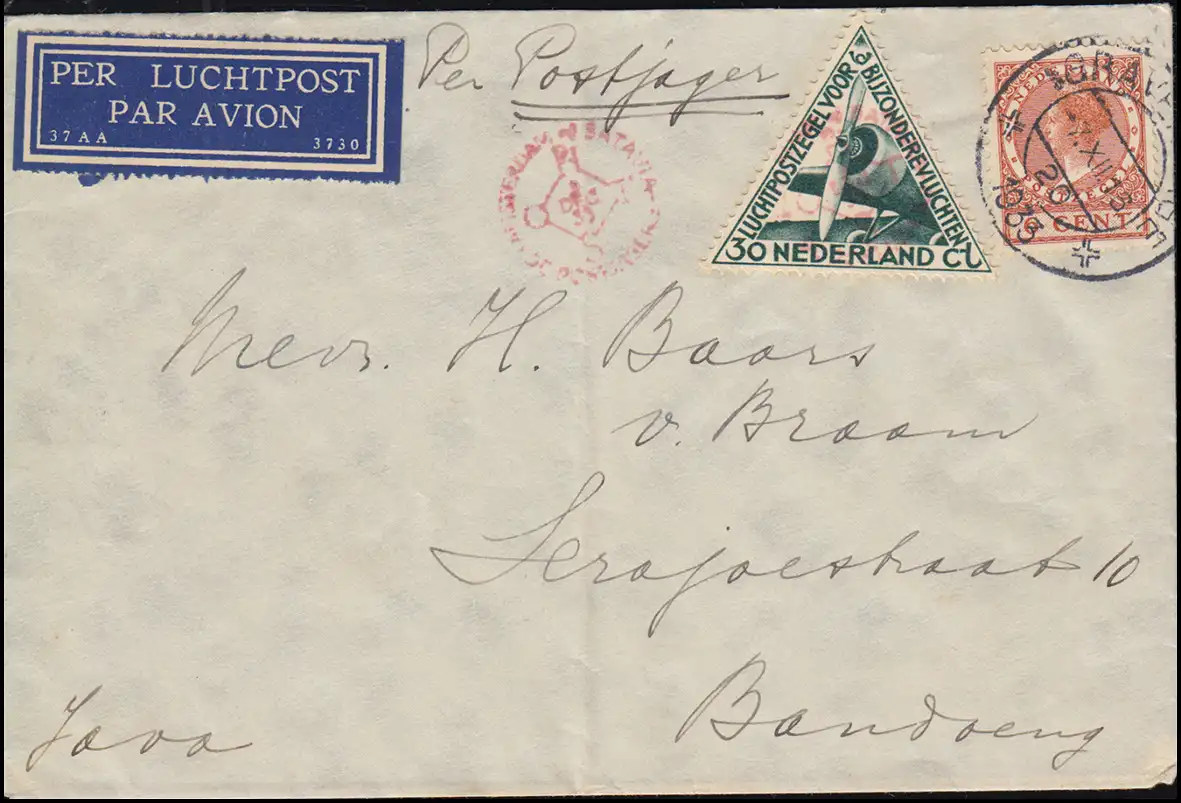 PER LUCHTPOST
PAR AVION
37AA 3730
Per Postjager
BATAVIA
LUCHTPOSTZEGEL VOOR BIJZONDERE VLUCHTEN
30 NEDERLAND CT
CENT
XII
1933
Mevr. H. Baars
v. Braam
Serajoestraat 10
Bandoeng
Java